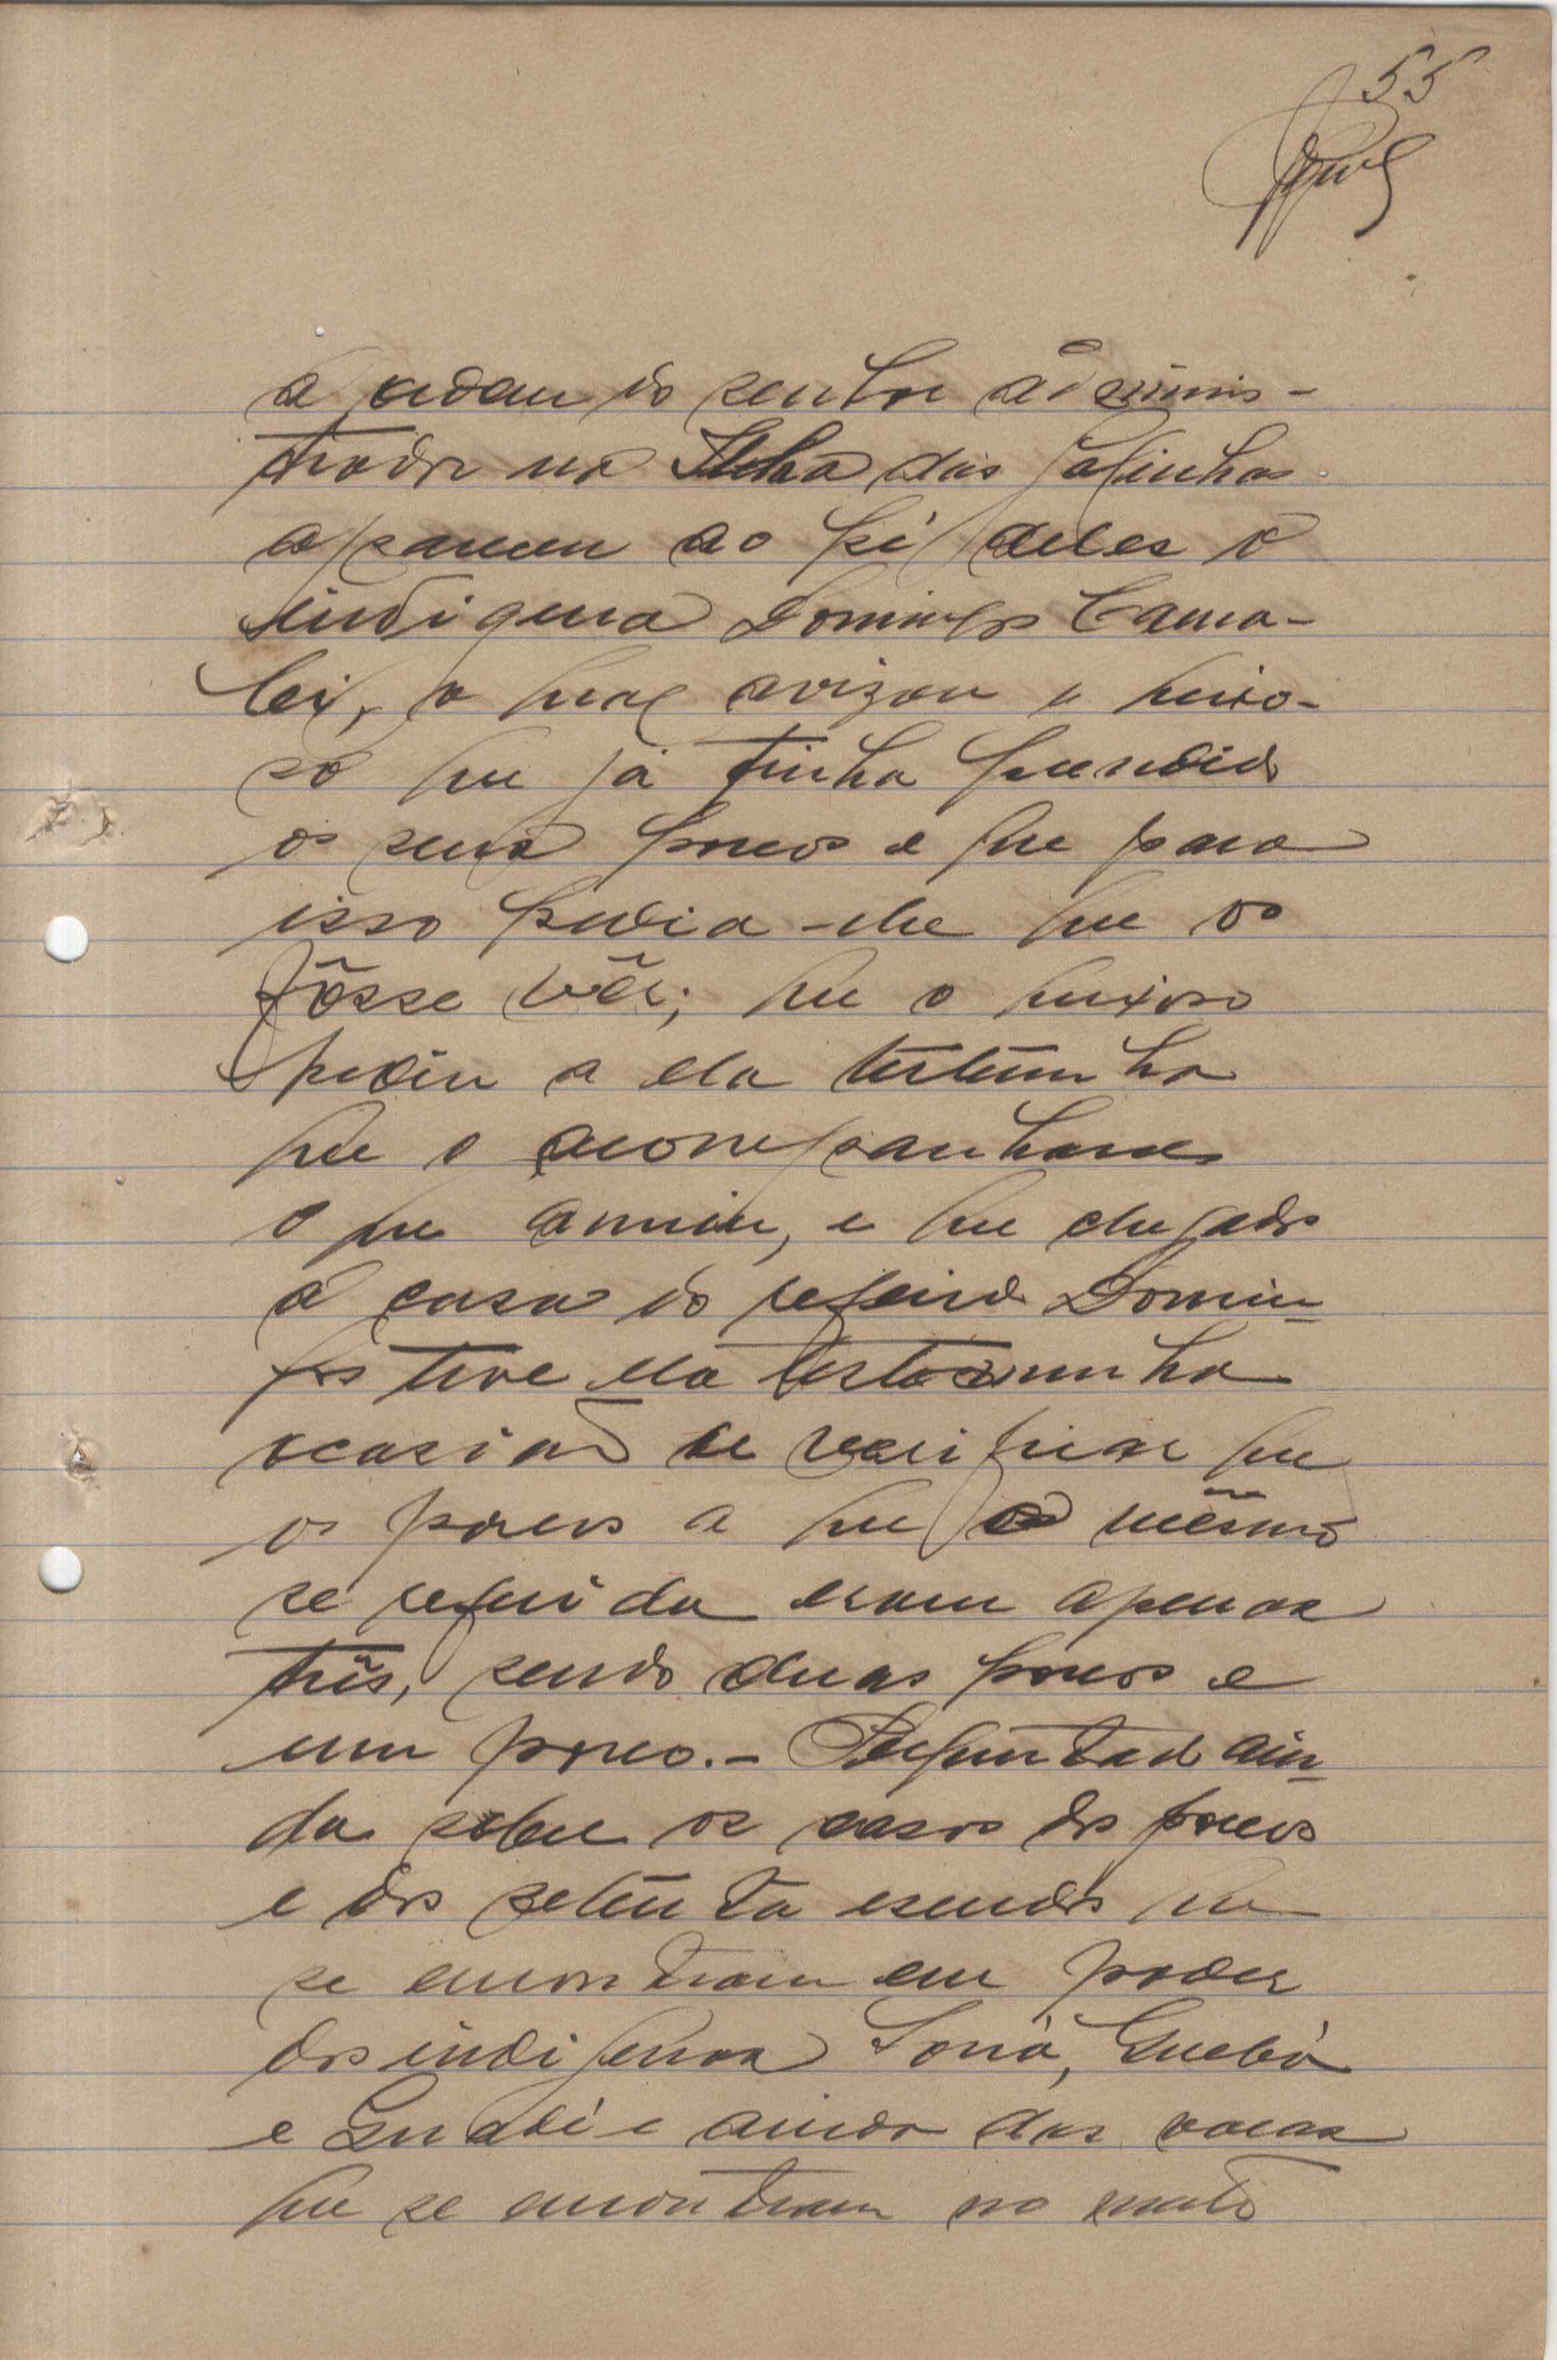 55
à ordem do senhor adminis-
trador na Ilha das Galinhas
apareceu ao pé deles o
indigena Domingos Cama-
lei, o qual avizou o queixo-
so que já tinha prendido
os seus porcos e que para
isso pedia-lhe que os
fôsse vêr; que o queixoso
pediu a ela testemunha
que o acompanhasse
o que anuiu, e que chegados
à casa do referido Domin-
gos teve ela testemunha
ocasião de verificar que
os porcos a que o mesmo
se referida eram apenas
três, sendo duas porcas e
um porco.- Perguntado ain-
da sobre os casos dos porcos
e dos setenta escudos que
se encontram em poder
dos indigenas Soná,
e e ainda das vacas
que se encontram no mato